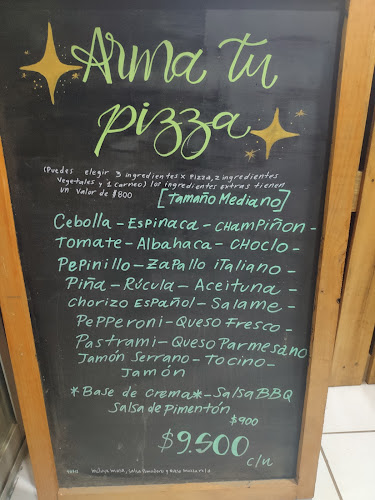 Arma tu
pizza
(Puedes elegir 3 ingredientes x pizza, 2 ingredientes
vegetales y 1 carneo) los ingredientes extras tienen
un valor de $800
[Tamaño Mediano]
Cebolla - Espinaca - Champiñon -
Tomate - Albahaca - Choclo -
Pepinillo - Zapallo italiano -
Piña - Rúcula - Aceituna -
Chorizo Español - Salame -
Pepperoni - Queso Fresco -
Pastrami - Queso Parmesano
Jamón Serrano - Tocino -
Jamón
*Base de crema* - Salsa BBQ
Salsa de Pimentón
$900
$9.500
c/u